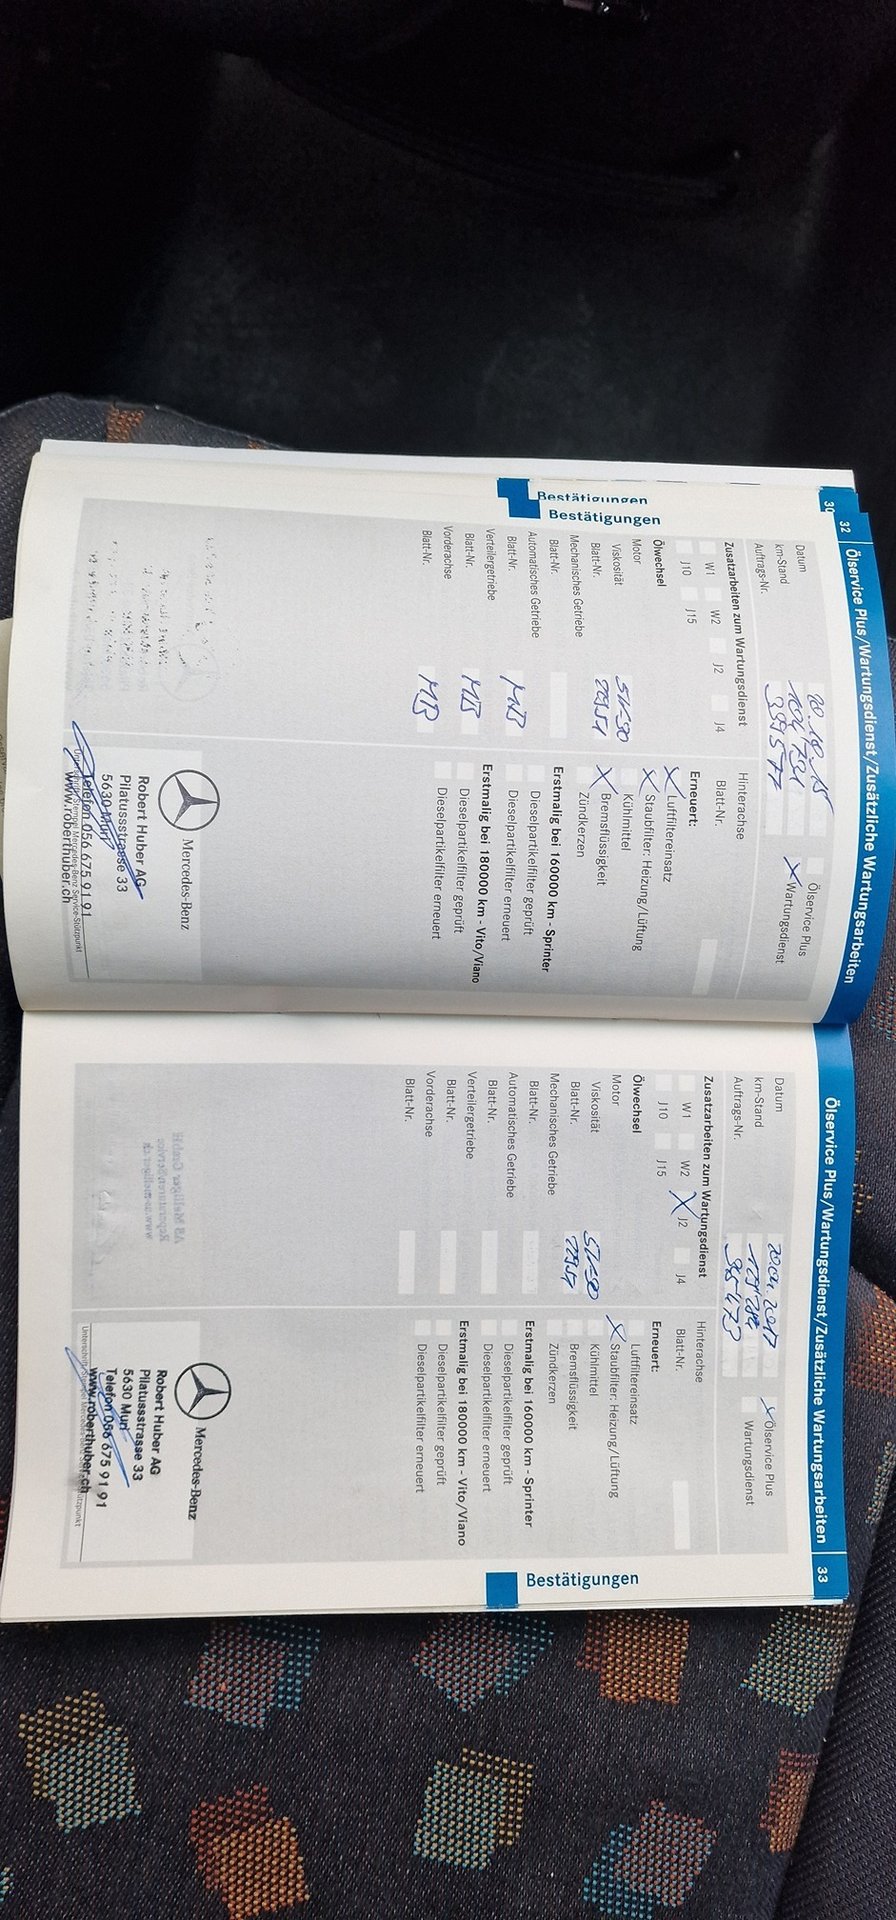 30
Bestätigungen
32
Ölservice Plus/Wartungsdienst/Zusätzliche Wartungsarbeiten
Bestätigungen
Datum
km-Stand
Auftrags-Nr. 399577
Ölservice Plus
X Wartungsdienst
Zusatzarbeiten zum Wartungsdienst
W1 W2 J2 J4
J10 J15
Ölwechsel
Motor
Viskosität 5W-30
Blatt-Nr. 229.51
Mechanisches Getriebe
Blatt-Nr.
Automatisches Getriebe
Blatt-Nr. MB
Verteilergetriebe
Blatt-Nr. MB
Vorderachse
Blatt-Nr. MB
Hinterachse
Blatt-Nr.
Erneuert:
X Luftfiltereinsatz
X Staubfilter: Heizung/Lüftung
Kühlmittel
X Bremsflüssigkeit
Zündkerzen
Erstmalig bei 160000 km - Sprinter
Dieselpartikelfilter geprüft
Dieselpartikelfilter erneuert
Erstmalig bei 180000 km - Vito/Viano
Dieselpartikelfilter geprüft
Dieselpartikelfilter erneuert
Mercedes-Benz
Robert Huber AG
Pilatussstrasse 33
5630 Muri
Telefon 056 675 91 91
Unterschrift/Stempel Mercedes-Benz Service-Stützpunkt
www.roberthuber.ch
Ölservice Plus/Wartungsdienst/Zusätzliche Wartungsarbeiten
33
Bestätigungen
Datum 20.04.2017
km-Stand
Auftrags-Nr.
X Ölservice Plus
Wartungsdienst
Zusatzarbeiten zum Wartungsdienst
W1 W2 X J2 J4
J10 J15
Ölwechsel
Motor
Viskosität 5W-30
Blatt-Nr. 229.51
Mechanisches Getriebe
Blatt-Nr.
Automatisches Getriebe
Blatt-Nr.
Verteilergetriebe
Blatt-Nr.
Vorderachse
Blatt-Nr.
Hinterachse
Blatt-Nr.
Erneuert:
Luftfiltereinsatz
X Staubfilter: Heizung/Lüftung
Kühlmittel
Bremsflüssigkeit
Zündkerzen
Erstmalig bei 160000 km - Sprinter
Dieselpartikelfilter geprüft
Dieselpartikelfilter erneuert
Erstmalig bei 180000 km - Vito/Viano
Dieselpartikelfilter geprüft
Dieselpartikelfilter erneuert
Mercedes-Benz
Robert Huber AG
Pilatussstrasse 33
5630 Muri
Telefon 056 675 91 91
www.roberthuber.ch
Unterschrift/Stempel Mercedes-Benz Service-Stützpunkt